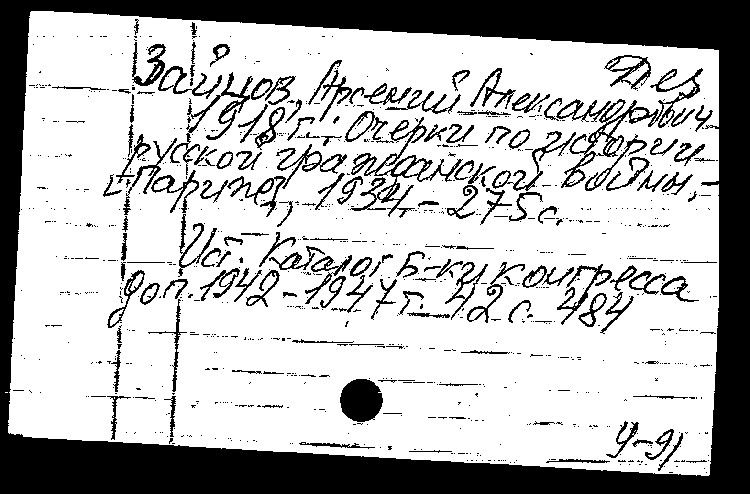 Дез
Зайцов, Арсений Александрович
1918 г.: Очерки по истории
русской гражданской войны.-
[Париж], 1934.- 275 с.
Ист. Каталог Б-ки конгресса
доп. 1942-1947 г. 42 с. 484
У-91